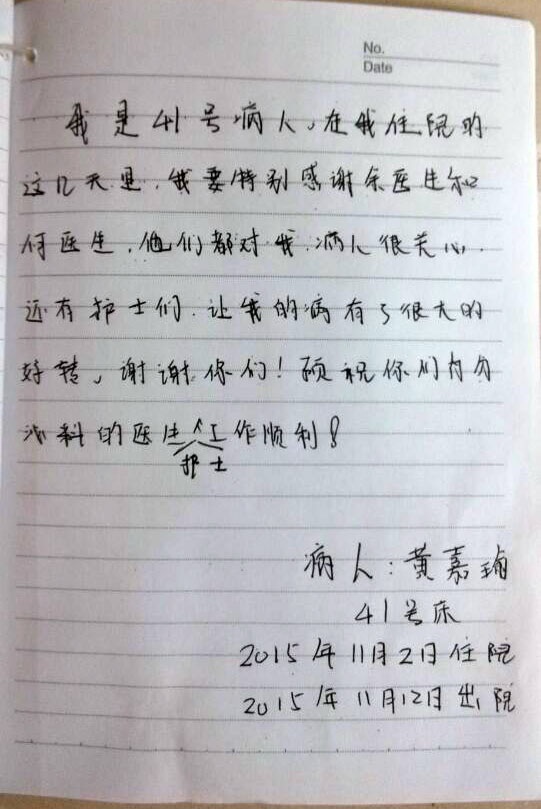 No.
Date
我是41号病人,在我住院的
这几天里,我要特别感谢余医生和
何医生,他们都对我病人很关心.
还有护士们.让我的病有了很大的
好转,谢谢你们!预祝你们内分
泌科的医生护士工作顺利!
病人:黄嘉瑜
41号床
2015年11月2日住院
2015年11月12日出院